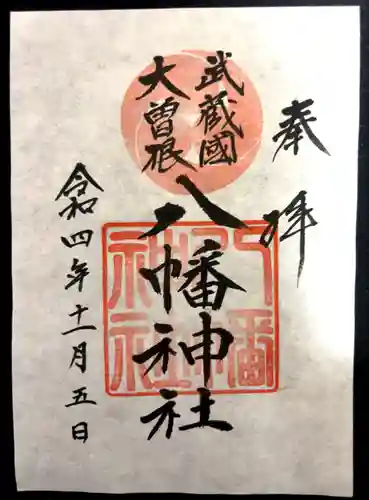 奉拝
武蔵國
大曽根
八幡神社
令和四年十一月五日
八幡
神社